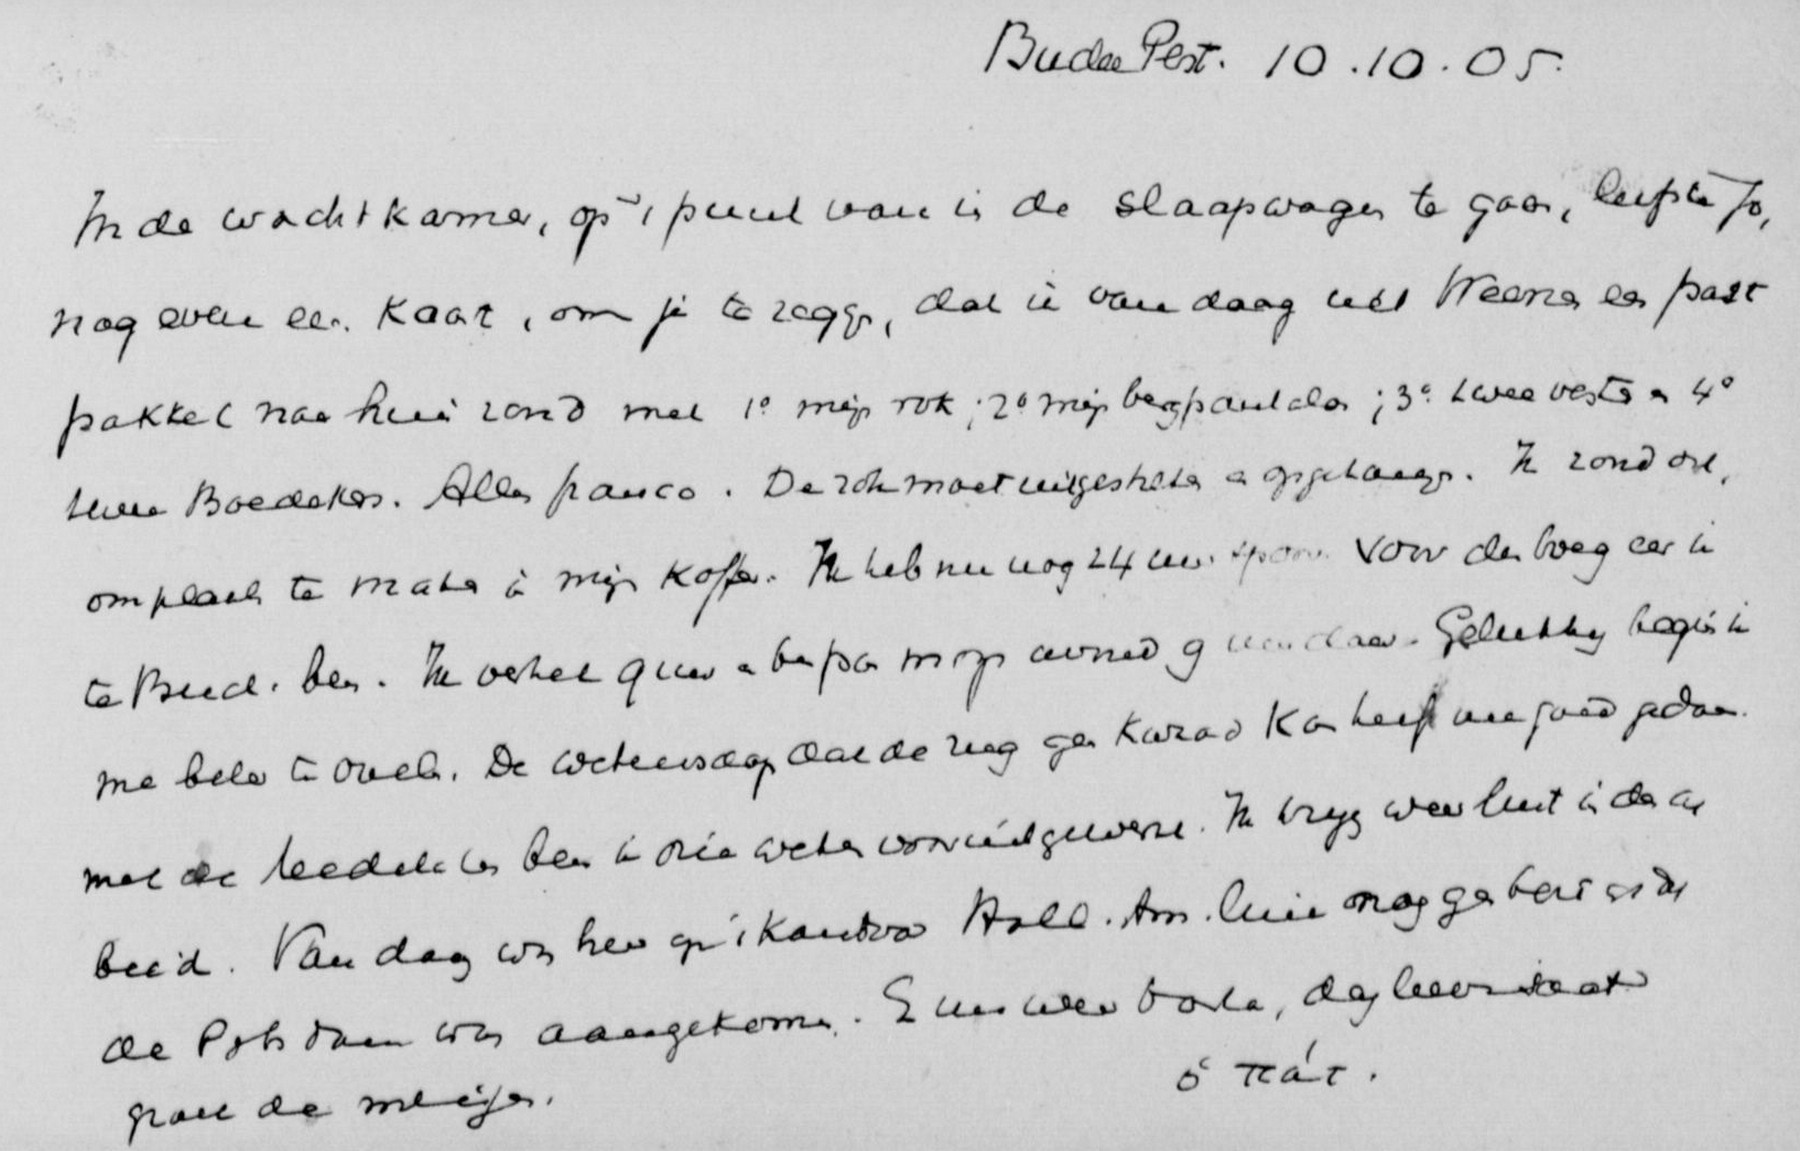 Buda Pest. 10.10.05.
In de wachtkamer, op 't punt van in de slaapwagen te gaan, liefste Jo,
nog even een kaart, om je te zeggen, dat ik vandaag uit Weenen een post
pakket naar huis zond met 1º mijn rok; 2º mijn bergpantalon; 3º twee vesten en 4º
twee Baedekers. Alles franco. De rok moet uitgestreken en opgehangen. Ik zond die,
om plaats te maken in mijn koffer. Ik heb nu nog 24 uur spoor voor den boeg eer ik
te Buc. ben. Ik vertrek 9 uur en ben pas morgen avond 9 uur daar. Gelukkig begin ik
me beter te voelen. De wetenschap dat de rug geen kwaad kan heeft me goed gedaan.
met de ben ik die weken vooruitgeweest. Ik krijg weer lust in den ar
beid. Vandaag was hier op 't kantoor Holl. Am. lijn nog geen bericht dat
de Potsdam was aangekomen. En nu weer basta, dag lieve
groet de meisjes.
ὁ πάτ.